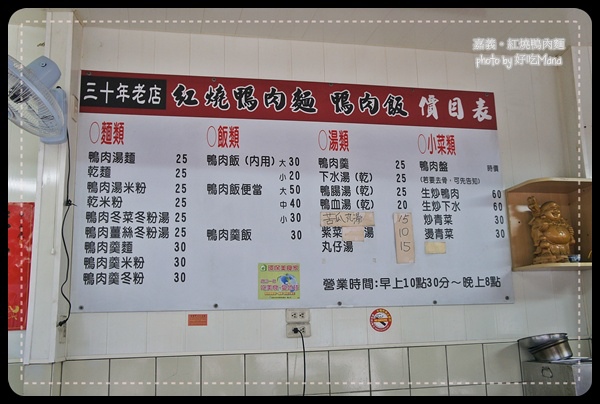 嘉義。紅燒鴨肉麵
photo by 好吃Mana
三十年老店 紅燒鴨肉麵 鴨肉飯 價目表
○麵類
鴨肉湯麵 25
乾麵 25
鴨肉湯米粉 25
乾米粉 25
鴨肉冬菜冬粉湯 25
鴨肉薑絲冬粉湯 25
鴨肉羹麵 30
鴨肉羹米粉 30
鴨肉羹冬粉 30
○飯類
鴨肉飯(內用) 大 30
小 20
鴨肉飯便當 大 50
中 40
小 30
鴨肉羹飯 30
○湯類
鴨肉羹 25
下水湯(乾) 25
鴨腸湯(乾) 25
鴨血湯(乾) 20
苦瓜丸湯 15
紫菜 湯 10
丸仔湯 15
○小菜類
鴨肉盤 時價
(若要去骨，可先告知)
生炒鴨肉 60
生炒下水 60
炒青菜 30
燙青菜 30
營業時間:早上10點30分～晚上8點